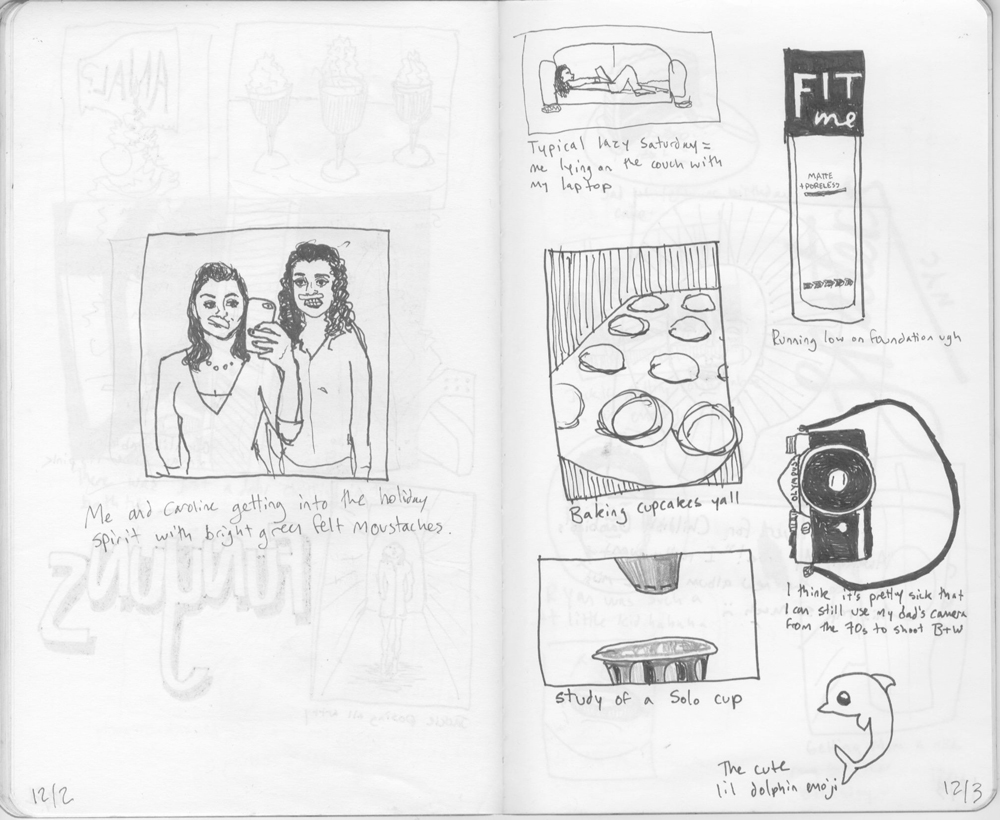 Me and Caroline getting into the holiday
spirit with bright green felt moustaches.
12/2
Typical lazy Saturday =
me lying on the couch with
my laptop
FIT
me
MATTE
+PORELESS
Running low on foundation ugh
Baking cupcakes yall
OLYMPUS
I think it's pretty sick that
I can still use my dad's camera
from the 70s to shoot B+W
Study of a Solo cup
The cute
lil dolphin emoji
12/3